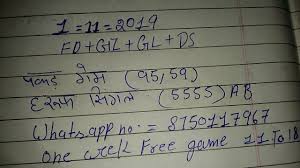 1=11=2019
FD+GZ+GL+DS
पक्की गेम (95,59)
हरूफ सिंगल (5555) AB
Whats.app no:= 8750117967
one week Free game 11 To 18